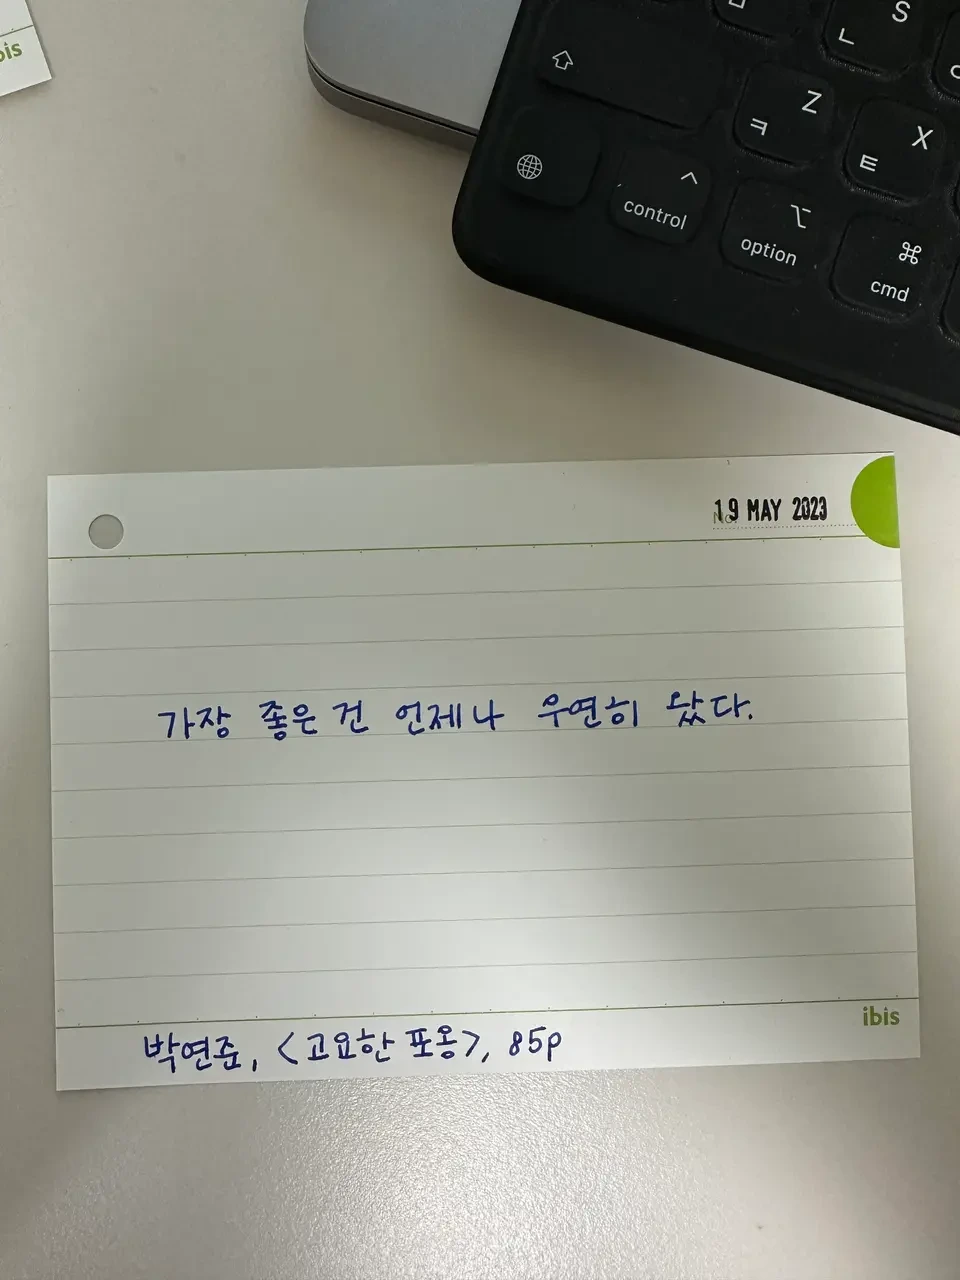 ibis
S
ㄴ
Z
ㅋ
X
ㅌ
control
option
cmd
19 MAY 2023
가장 좋은 건 언제나 우연히 왔다.
ibis
박연준, <고요한 포옹>, 85p